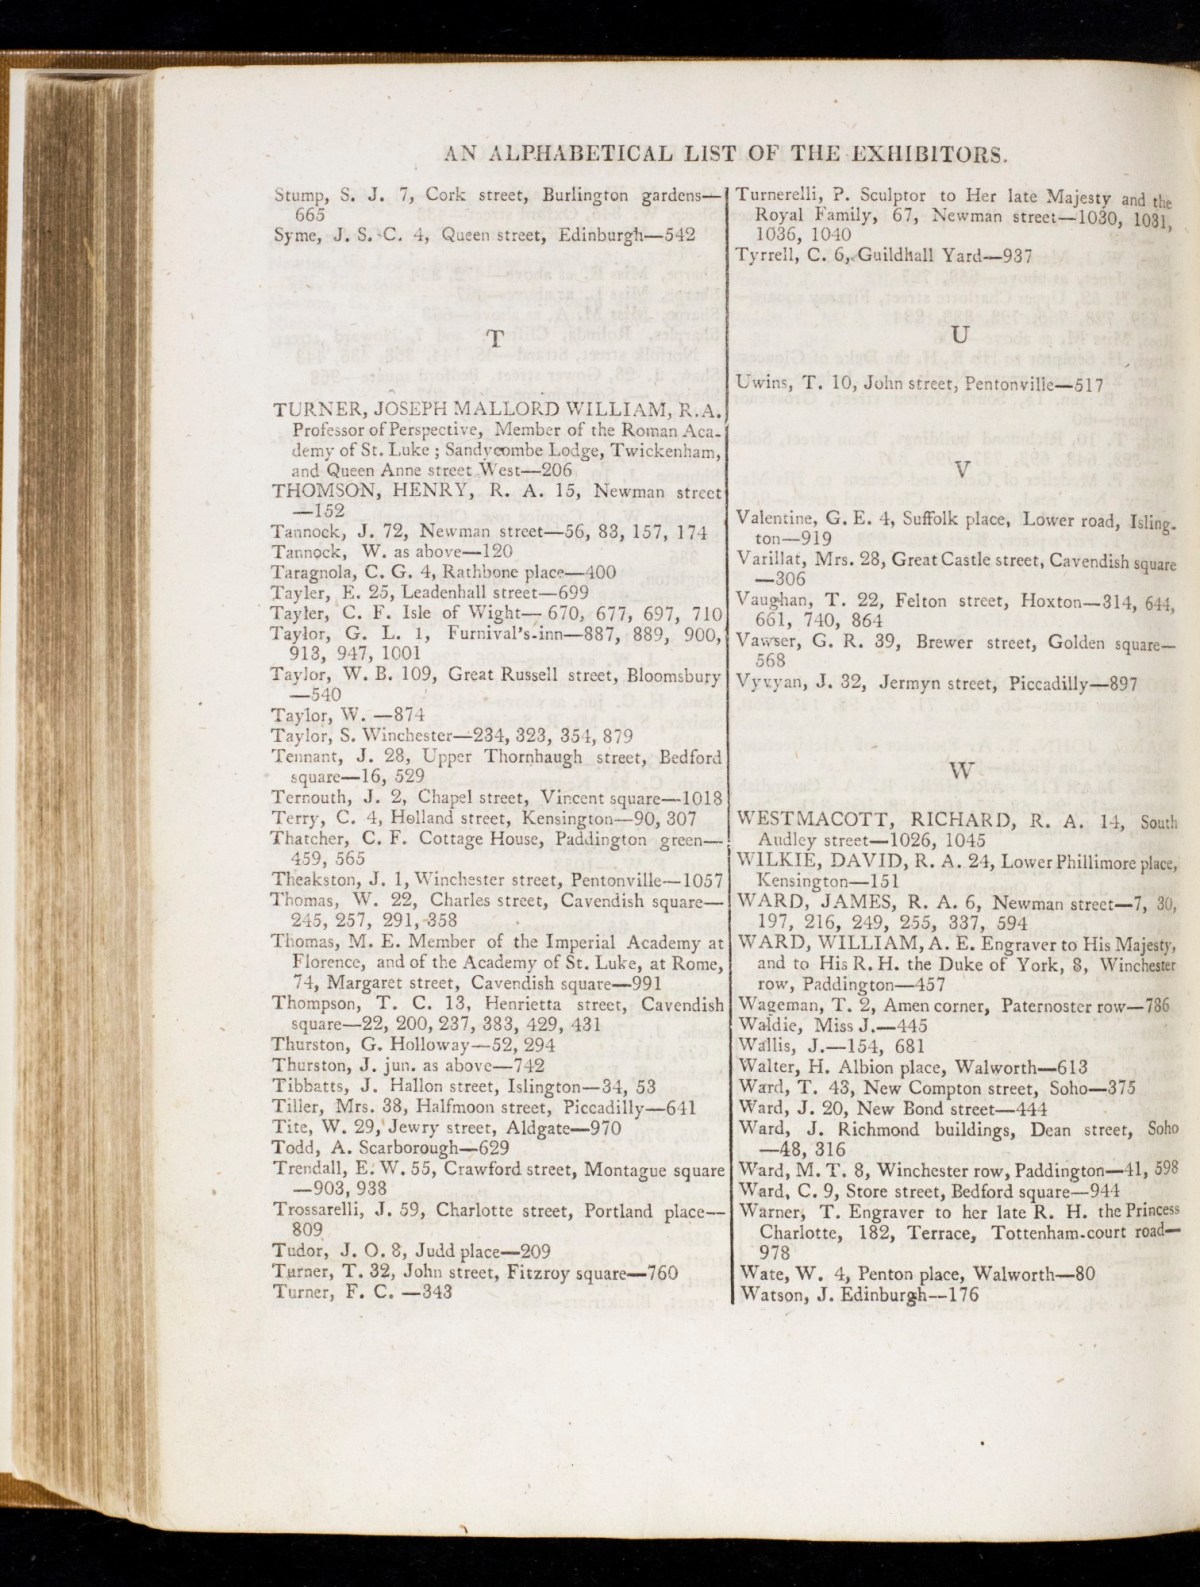 AN ALPHABETICAL LIST OF THE EXHIBITORS.
Stump, S. J. 7, Cork street, Burlington gardens—
665
Syme, J. S. C. 4, Queen street, Edinburgh—542
T
TURNER, JOSEPH MALLORD WILLIAM, R.A.
Professor of Perspective, Member of the Roman Aca-
demy of St. Luke; Sandycombe Lodge, Twickenham,
and Queen Anne street West—206
THOMSON, HENRY, R. A. 15, Newman street
—152
Tannock, J. 72, Newman street—56, 83, 157, 174
Tannock, W. as above—120
Taragnola, C. G. 4, Rathbone place—400
Tayler, E. 25, Leadenhall street—699
Tayler, C. F. Isle of Wight—670, 677, 697, 710
Taylor, G. L. 1, Furnival's-inn—887, 889, 900,
913, 947, 1001
Taylor, W. B. 109, Great Russell street, Bloomsbury
—540
Taylor, W. —874
Taylor, S. Winchester—234, 323, 354, 879
Tennant, J. 28, Upper Thornhaugh street, Bedford
square—16, 529
Ternouth, J. 2, Chapel street, Vincent square—1018
Terry, C. 4, Holland street, Kensington—90, 307
Thatcher, C. F. Cottage House, Paddington green—
459, 565
Theakston, J. 1, Winchester street, Pentonville—1057
Thomas, W. 22, Charles street, Cavendish square—
245, 257, 291, 358
Thomas, M. E. Member of the Imperial Academy at
Florence, and of the Academy of St. Luke, at Rome,
74, Margaret street, Cavendish square—991
Thompson, T. C. 13, Henrietta street, Cavendish
square—22, 200, 237, 383, 429, 431
Thurston, G. Holloway—52, 294
Thurston, J. jun. as above—742
Tibbatts, J. Hallon street, Islington—34, 53
Tiller, Mrs. 38, Halfmoon street, Piccadilly—641
Tite, W. 29, Jewry street, Aldgate—970
Todd, A. Scarborough—629
Trendall, E. W. 55, Crawford street, Montague square
—903, 938
Trossarelli, J. 59, Charlotte street, Portland place—
809
Tudor, J. O. 8, Judd place—209
Turner, T. 32, John street, Fitzroy square—760
Turner, F. C. —343
Turnerelli, P. Sculptor to Her late Majesty and the
Royal Family, 67, Newman street—1030, 1031,
1036, 1040
Tyrrell, C. 6, Guildhall Yard—937
U
Uwins, T. 10, John street, Pentonville—517
V
Valentine, G. E. 4, Suffolk place, Lower road, Isling-
ton—919
Varillat, Mrs. 28, Great Castle street, Cavendish square
—306
Vaughan, T. 22, Felton street, Hoxton—314, 644,
661, 740, 864
Vawser, G. R. 39, Brewer street, Golden square—
568
Vyvyan, J. 32, Jermyn street, Piccadilly—897
W
WESTMACOTT, RICHARD, R. A. 14, South
Audley street—1026, 1045
WILKIE, DAVID, R. A. 24, Lower Phillimore place,
Kensington—151
WARD, JAMES, R. A. 6, Newman street—7, 30,
197, 216, 249, 255, 337, 594
WARD, WILLIAM, A. E. Engraver to His Majesty,
and to His R. H. the Duke of York, 8, Winchester
row, Paddington—457
Wageman, T. 2, Amen corner, Paternoster row—786
Waldie, Miss J.—445
Wallis, J.—154, 681
Walter, H. Albion place, Walworth—613
Ward, T. 43, New Compton street, Soho—375
Ward, J. 20, New Bond street—444
Ward, J. Richmond buildings, Dean street, Soho
—48, 316
Ward, M. T. 8, Winchester row, Paddington—41, 598
Ward, C. 9, Store street, Bedford square—944
Warner, T. Engraver to her late R. H. the Princess
Charlotte, 182, Terrace, Tottenham-court road—
978
Wate, W. 4, Penton place, Walworth—80
Watson, J. Edinburgh—176